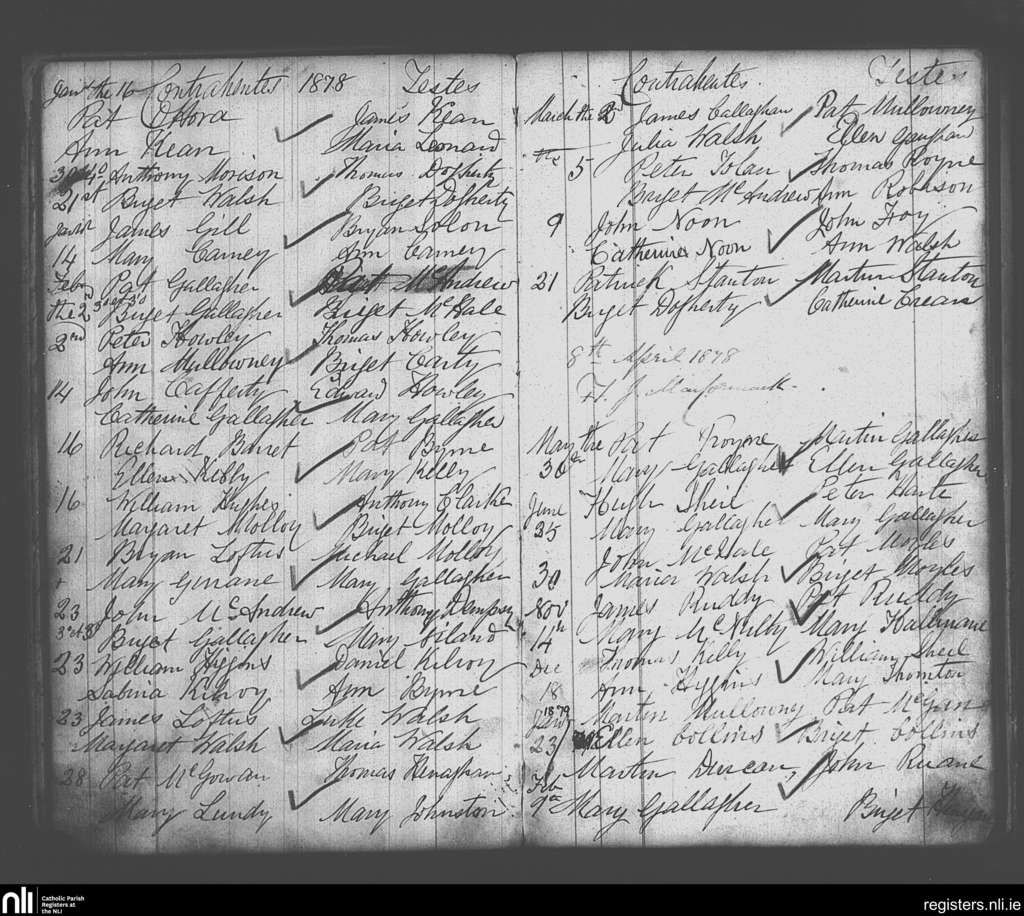 Jany the 16 Contrahentes 1878 Testes
Pat Coffora James Kean
Ann Kean Maria Leonard
Anthony Morison Thomas Dogherty
21st Briget Walsh Briget Dogherty
James Gill Bryan Solon
14 Mary Carney Ann Carney
Feby Pat Gallagher McAndrew
the 2nd Briget Gallagher Briget McHale
2nd Peter Howley Thomas Howley
Ann Mullowney Briget Carty
14 John Cafferty Edward Howley
Catherine Gallagher Mary Gallagher
16 Richard Barret Pat Byrne
Ellen Kelly Mary Kelly
16 William Hughes Anthony Clarke
Margaret Molloy Briget Molloy
21 Bryan Loftus Michael Molloy
Mary Ginane Mary Gallagher
23 John McAndrew Anthony Dempsy
Briget Gallagher Mary Giland
23 William Higgins Daniel Kilroy
Sabina Kilroy Ann Byrne
23 James Loftus Luke Walsh
Margaret Walsh Maria Walsh
28 Pat McGowan Thomas Henaghan
Mary Lundy Mary Johnston
Contrahentes. Testes
March the 2nd James Callaghan Pat Mullowney
Julia Walsh Ellen Gaughan
the 5 Peter Tolan Thomas Royne
Briget McAndrew Ann Robinson
9 John Noon John Foy
Catherine Noon Ann Walsh
21 Patrick Stanton Martin Stanton
Briget Dogherty Catherine Crean
8th April 1878
May the Pat Royne Martin Gallagher
30th Mary Gallagher Ellen Gallagher
June Hugh Sheil Peter Harte
25 Mary Gallagher Mary Gallagher
John McHale Pat Moyles
30 Maria Walsh Briget Moyles
Nov James Ruddy Pat Ruddy
14th Mary McNulty Mary Hallinane
Dec Thomas Kelly William Sheil
18 Ann Higgins Mary Thornton
1879
Jany Martin Mullowny Pat McGran
23 Ellen Collins Briget Collins
Feb Martin Duncan, John Ruane
9th Mary Gallagher Briget
nli Catholic Parish
Registers at
the NLI
registers.nli.ie